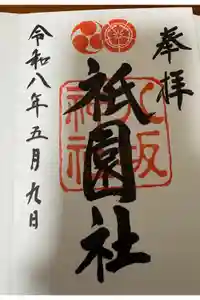 奉拝
祇園社
八坂神社
令和八年五月九日